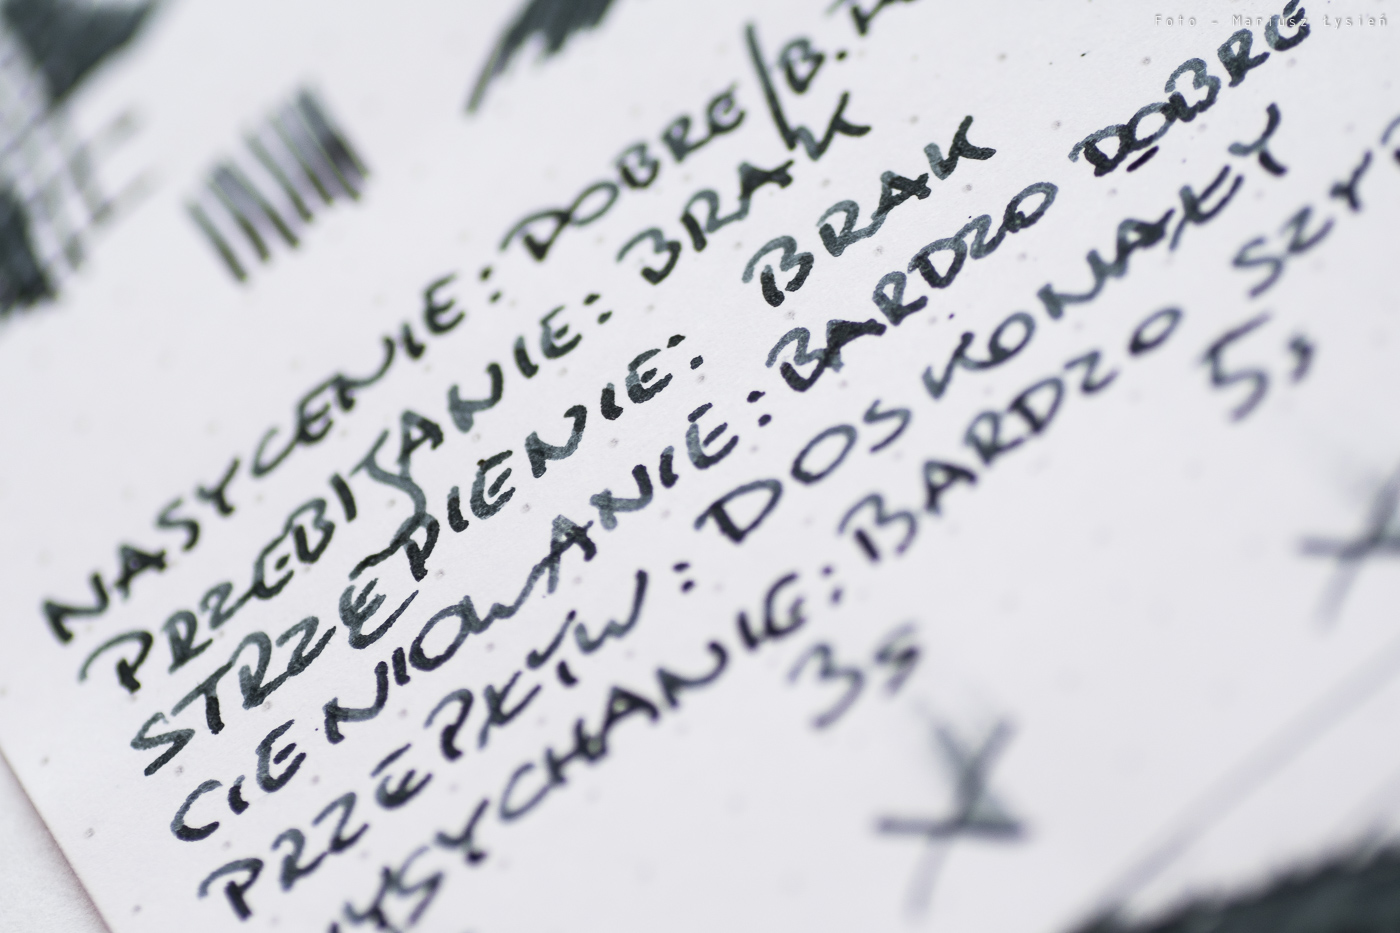 Foto - Mariusz Łysień
NASYCENIE: DOBRE/B.
PRZEBIJANIE: BRAK
STRZĘPIENIE: BRAK
CIENIOWANIE: BARDZO DOBRE
PRZEPŁYW: DOSKONAŁY
WYSYCHANIE: BARDZO
3s 5s